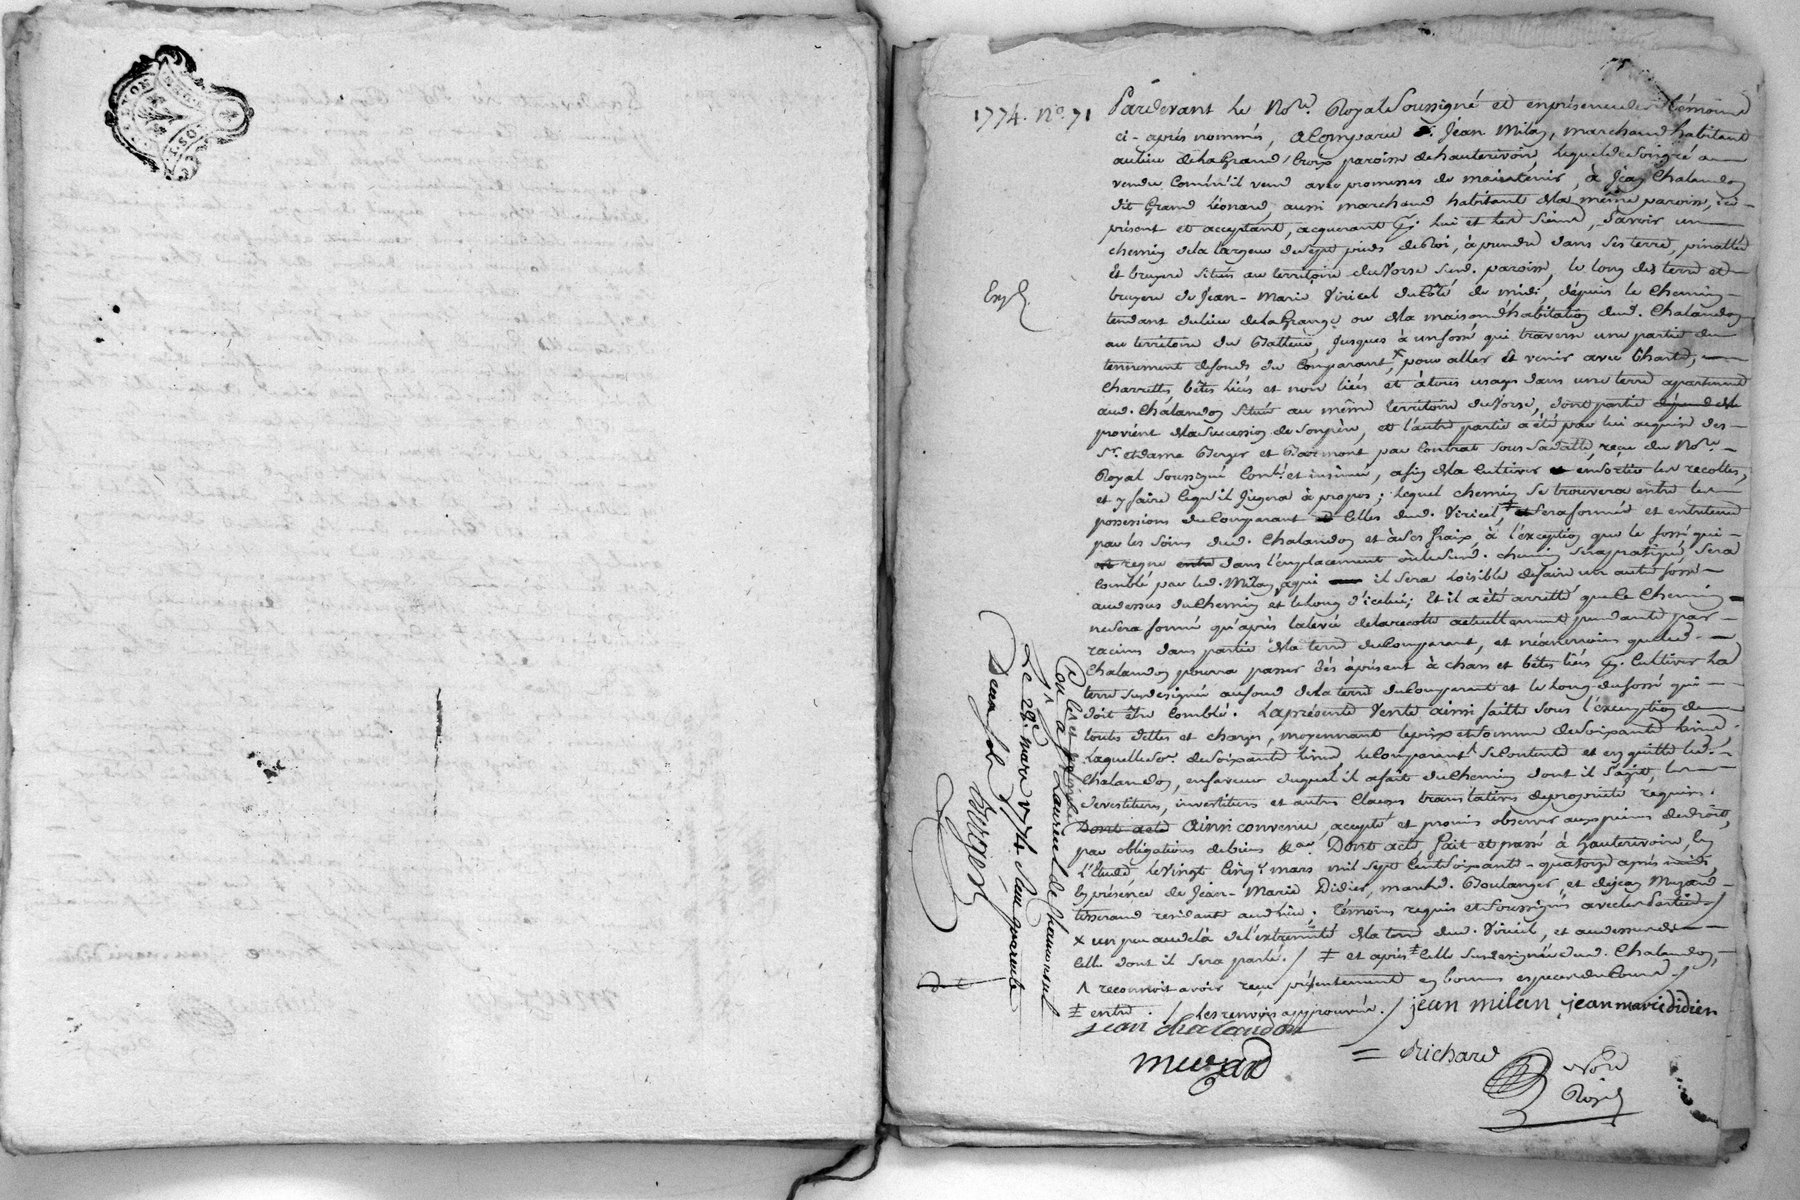 1774. No. 71
Pardevant le No.re Royal Soussigné et en présence des témoins
ci-après nommés, a Comparu Sr. Jean Milan, marchand habitant
au lieu de la Grand Croix paroisse de hauterivoire, lequel de Son gré a
vendu Comm'il vend avec promesses de maintenir, à Jean Chalandon
dit Grand Léonard, aussi marchand habitant de la même paroisse, ici
présent et acceptant, acquerant p. lui et les Siens, Savoir un
chemin de la largeur de Sept pieds de Roi, à prendre dans Ses terre, pinattée
et bruyere Situés au territoire du Vorse Susd. paroisse, le long des terre et
bruyere de Jean-Marie Viricel du Côté de midi, dépuis le Chemin
tendant du lieu de la Grange ou de la maison d'habitation dud. Chalandon
au territoire du, jusques à un fossé qui traverse une partie du
tennement de fonds du Comparant, x pour aller et venir avec Chars,
Charrettes, bêtes liées et non liées et à tous usages dans une terre apartenant
aud. Chalandon Située au même territoire du Vorse, dont partie dépend de la
provient de la Succession de Son père, et l'autre partie a été par lui acquise des
Sr. et dame Berger et par Contrat Sous Sa datte, reçu du No.re
Royal Soussigné Contrôlé et insinué, afin de la Cultiver et en Sortir les recoltes,
et y faire Ce qu'il Jugera à propos; lequel chemin Se trouvera entre les
possessions du Comparant et Celles dud. Viricel, ‡ et Sera formé et entretenu
par les Soins dud. Chalandon et à Ses fraix, à l'éxception que le fossé qui
est regne entre dans l'emplacement où le Susd. chemin Sera pratiqué, Sera
Comblé par led. Milan, à qui il Sera loisible de faire un autre fossé
au dessus du Chemin et le long d'icelui; Et il a été arretté que le Chemin
ne Sera formé qu'après la levée de la recolte actuellement pendante par
racines dans partie de la terre du Comparant, et néanmoins que led.
Chalandon pourra passer dès àprésent à chars et bêtes liées p. Cultiver la
terre Susdesignée au fond de la terre du Comparant et le long du fossé qui
doit être Comblé. La présente Vente ainsi faitte Sous l'éxception de
toutes dettes et charges, moyennant le prix et Somme de Soixante livres,
Laquelle So. de Soixante livres le Comparant ^ Se Contente et en quitte led.
Chalandon, en faveur duquel il a fait du Chemin dont il S'agit, les
devestitures, investitures et autres Clauses translatives de propriété requises.
Dont acte Ainsi convenu, accepté et promis observer aux peines de droit,
par obligations de biens &a. Dont acte fait et passé à hauterivoire, en
l'Etude le Vingt Cinq mars mil Sept Cent Soixante-quatorze après midi,
en présence de Jean-Marie Didier, marchd. Boulanger, et de Jean Muzard
tisserand residants aud. lieu, témoins requis et Soussignés avec les parties /
x un peu au delà de l'extremité de la terre dud. Viricel, et au dessus de
Celle dont il Sera parlé. / ‡ et après ‡ Celle Susdesignée dud. Chalandon,
^ reconnoit avoir reçu présentement en bonnes especes du Cours. /
‡ entre. / les renvois approuvés. / jean milan jeanmarie didier
jean chalandon
muzard
= Richard No.re Royal
Exp.
Con.lé et insinué
a St Laurent de Chamousset
Le 28. mars 1774. Reçu quarente
Deux Sols